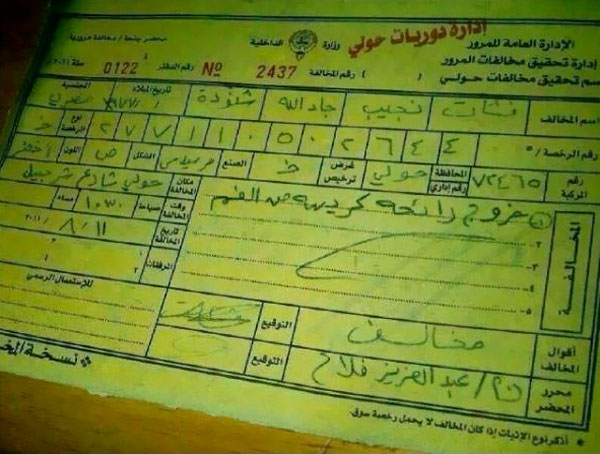 إدارة دوريات حولي
الإدارة العامة للمرور
وزارة الداخلية
إدارة تحقيق مخالفات المرور
محضر جنحة / مخالفة مرورية
قسم تحقيق مخالفات حولي ( ) رقم المخالفة 2437 Nº رقم الدفتر 0122 سنة ٢٠١١
اسم المخالف نشأت نجيب جادالله شنودة تاريخ الميلاد الجنسية مصري
رقم الرخصة / ٢٧٧١١٠٥٠٢٦٤٤ نوع الرخصة خ
رقم المركبة ٧٢٤٦٥ المحافظة رقم إداري حولي غرض ترخيص ط الصنع مرسيدس الشكل ص اللون
المخالفة
١ خروج رائحة كريهة من الفم
٢-
٣-
٤-
٥-
مكان المخالفة حولي شارع شرحبيل
وقت المخالفة صباحا ١٠:٣٠ مساء
تاريخ المخالفة ٢٠١١/٨/١١
المرفقات
للاستعمال الرسمي
أقوال المخالف مخالف التوقيع
محرر المحضر عبدالعزيز فلاح التوقيع
* أذكر نوع الإثبات إذا كان المخالف لا يحمل رخصة سوق.
* نسخة